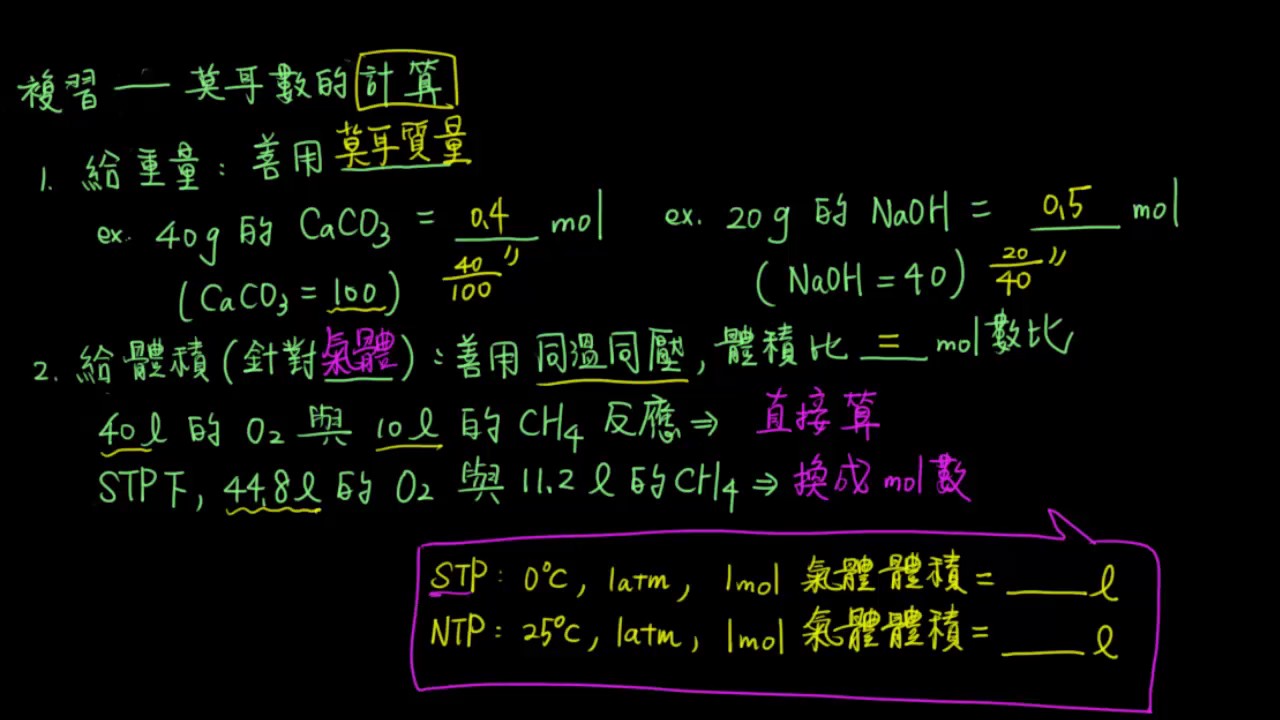 複習 — 莫耳數的計算
1. 給重量：善用莫耳質量
ex. 40g 的 CaCO3 = 0.4 mol ex. 20g 的 NaOH = 0.5 mol
(CaCO3 = 100) 40/100 〃 (NaOH = 40) 20/40 〃
2. 給體積(針對氣體)：善用同溫同壓, 體積比 = mol數比
40l 的 O2 與 10l 的 CH4 反應⇒ 直接算
STP下, 44.8l 的 O2 與 11.2 l 的CH4 ⇒ 換成mol數
STP: 0°C, 1atm, 1mol 氣體體積 = ____ l
NTP: 25°C, 1atm, 1mol 氣體體積 = ____ l